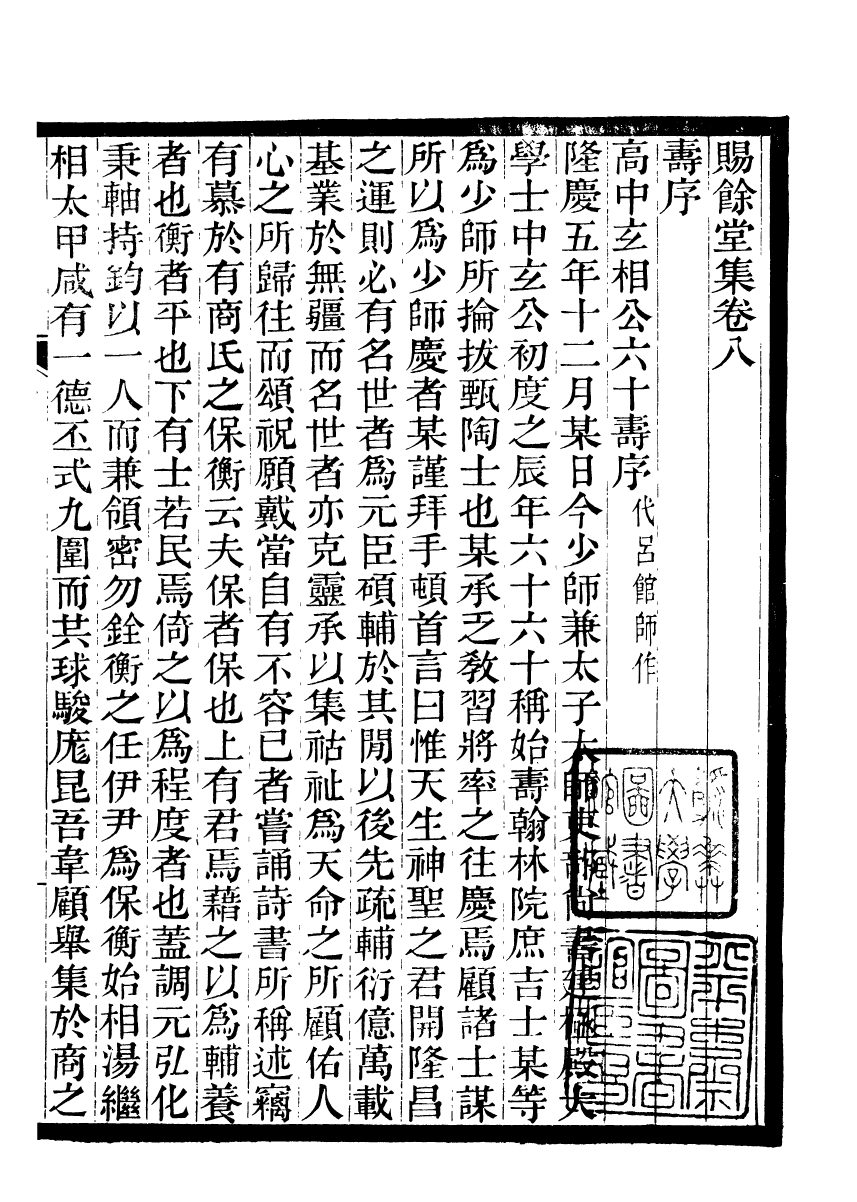 賜餘堂集卷八
壽序
高中玄相公六十壽序代呂館師作
隆慶五年十二月某日今少師兼太子太師吏部尚書建極殿大
學士中玄公初度之辰年六十六十稱始壽翰林院庶吉士某等
為少師所掄拔甄陶士也某承乏教習將率之往慶焉顧諸士謀
所以為少師慶者某謹拜手頓首言曰惟天生神聖之君開隆昌
之運則必有名世者為元臣碩輔於其閒以後先疏輔衍億萬載
基業於無疆而名世者亦克靈承以集祜祉為天命之所顧佑人
心之所歸往而頌祝願戴當自有不容已者嘗誦詩書所稱述竊
有慕於有商氏之保衡云夫保者保也上有君焉藉之以為輔養
者也衡者平也下有士若民焉倚之以為程度者也蓋調元弘化
秉軸持鈞以一人而兼領密勿銓衡之任伊尹為保衡始相湯繼
相太甲咸有一德丕式九圍而共球駿厖昆吾韋顧舉集於商之